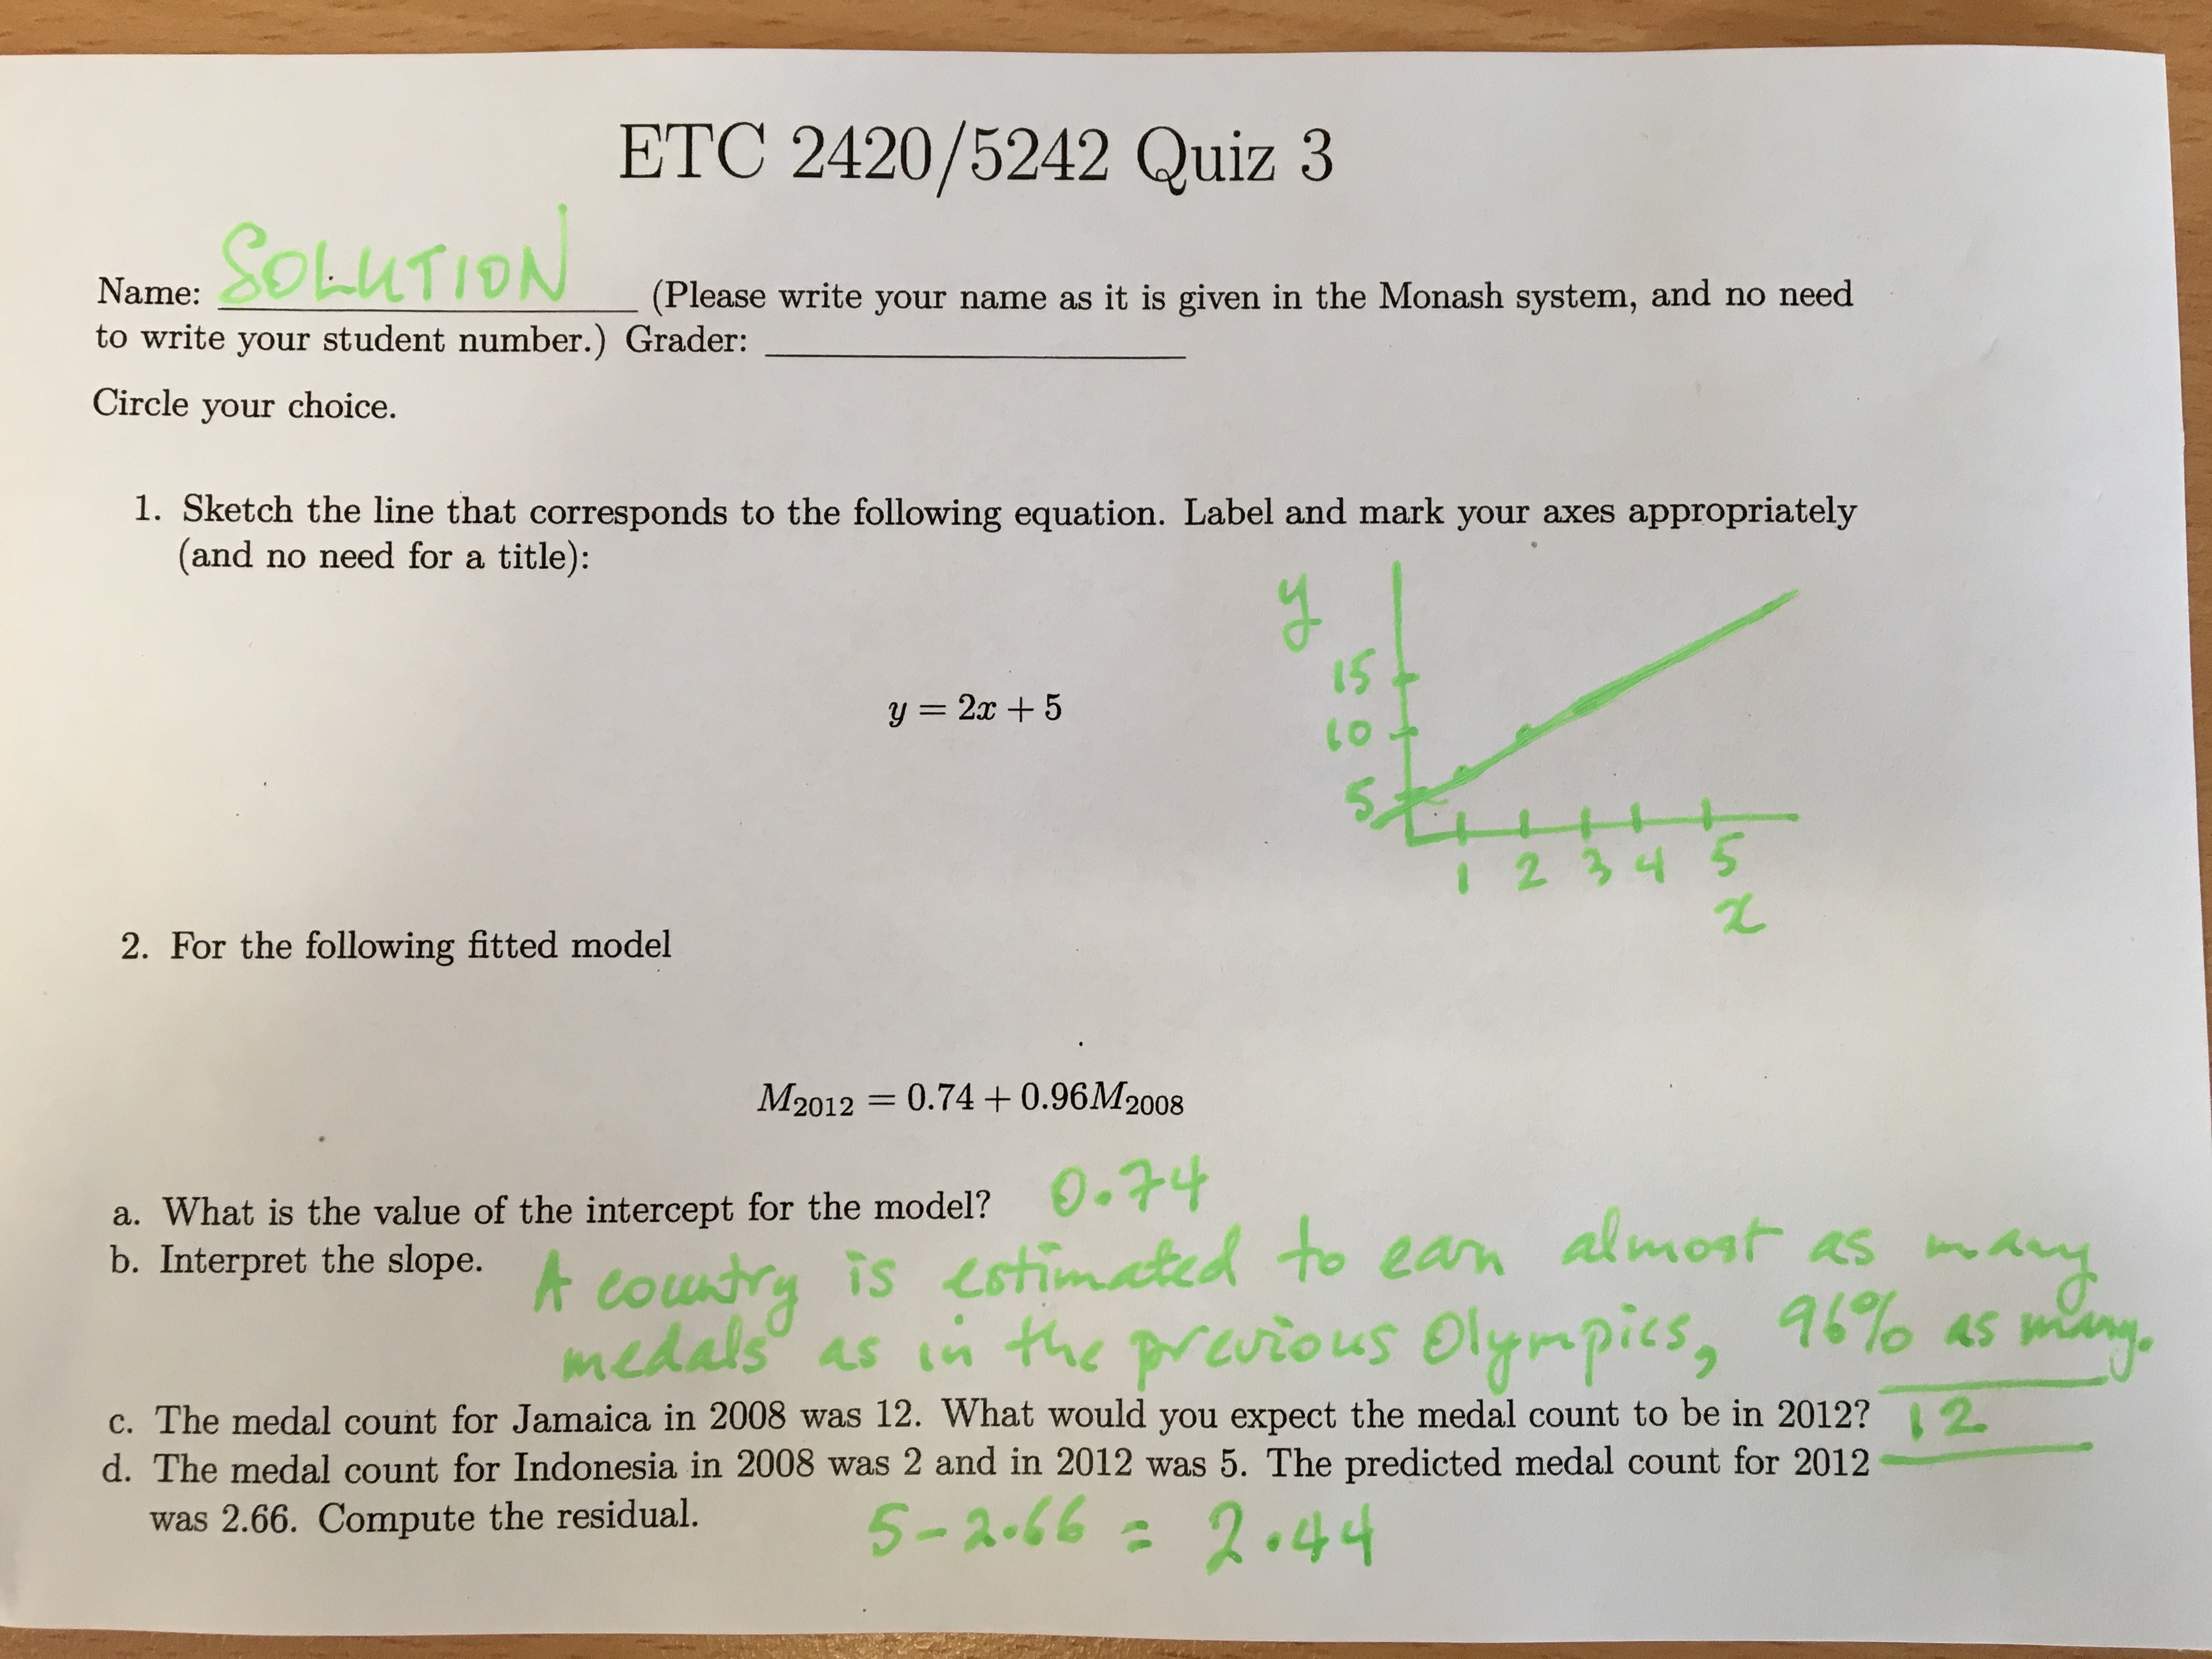 ETC 2420/5242 Quiz 3
Name: SOLUTION (Please write your name as it is given in the Monash system, and no need
to write your student number.) Grader:
Circle your choice.
1. Sketch the line that corresponds to the following equation. Label and mark your axes appropriately
(and no need for a title):
y = 2x + 5
y
15
10
5
1 2 3 4 5
x
2. For the following fitted model
M₂₀₁₂ = 0.74 + 0.96M₂₀₀₈
a. What is the value of the intercept for the model? 0.74
b. Interpret the slope. A country is estimated to earn almost as many
medals as in the previous Olympics, 96% as many.
c. The medal count for Jamaica in 2008 was 12. What would you expect the medal count to be in 2012? 12
d. The medal count for Indonesia in 2008 was 2 and in 2012 was 5. The predicted medal count for 2012
was 2.66. Compute the residual. 5-2.66 = 2.44